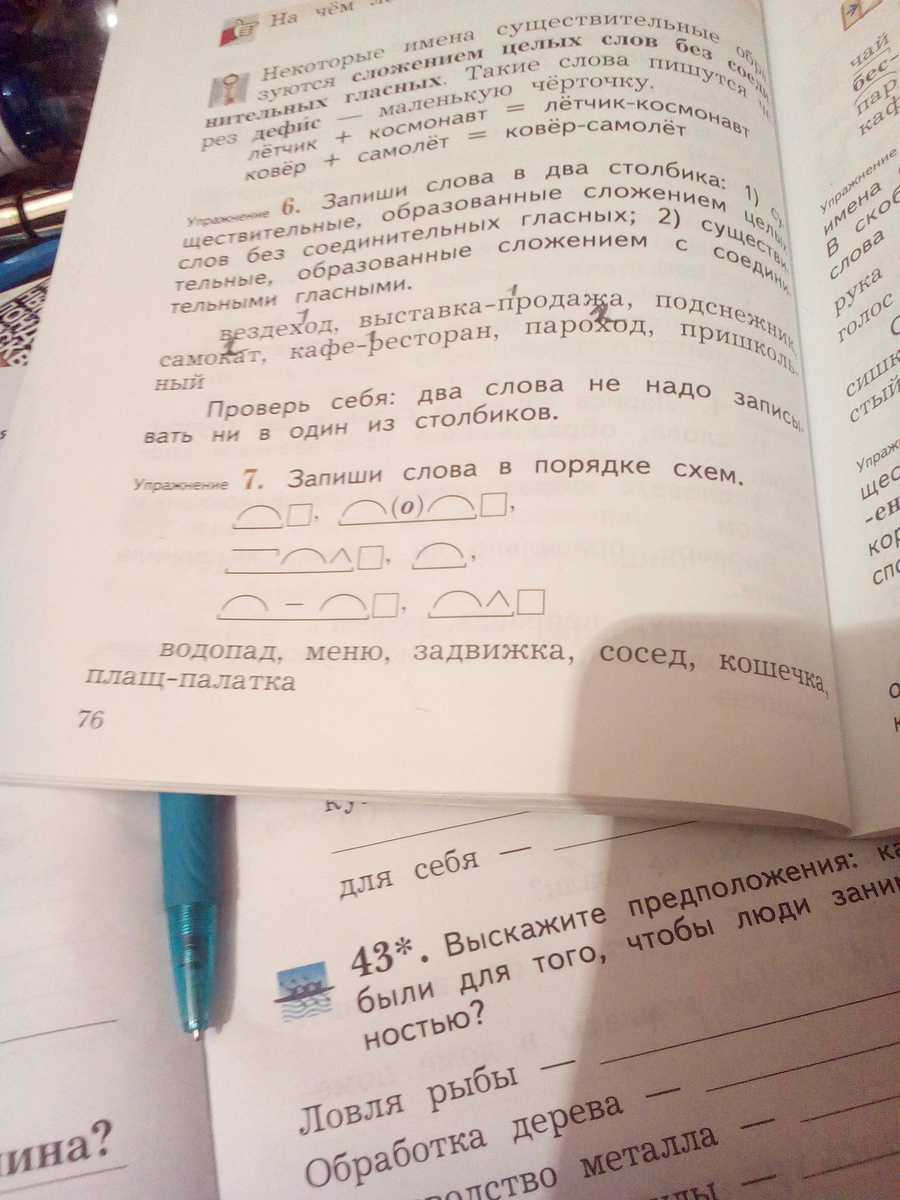 На чём
Некоторые имена существительные
зуются сложением целых слов без
нительных гласных. Такие слова пишутся
рез дефис — маленькую чёрточку.
лётчик + космонавт = лётчик-космонавт
ковёр + самолёт = ковёр-самолёт
Упражнение 6. Запиши слова в два столбика: 1) су-
ществительные, образованные сложением целых
слов без соединительных гласных; 2) существи-
тельные, образованные сложением с соедини-
тельными гласными.
вездеход, выставка-продажа, подснежник,
самокат, кафе-ресторан, пароход, пришколь-
ный
Проверь себя: два слова не надо записы-
вать ни в один из столбиков.
Упражнение 7. Запиши слова в порядке схем.
(о)
водопад, меню, задвижка, сосед, кошечка,
плащ-палатка
76
чай
бес-
пар
каф
Упражнение
имена
В скоб
слова
рука
голос
С
сишк
стый
Упраж
щес
-ен
кор
спо
для себя —
43*. Выскажите предположения: ка
были для того, чтобы люди заним
ностью?
Ловля рыбы —
Обработка дерева —
водство металла —
ина?